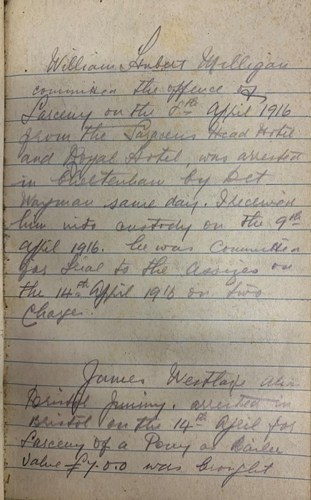 William Hubert Milligan
committed the offence of
Larceny on the 8th April 1916
from the Saracens Head Hotel
and Royal Hotel, was arrested
in Cheltenham by Det
Wayman same day. I received
him into custody on the 9th
April 1916. he was Committed
for trial to the Assizes on
the 14th April 1916 on two
Charges.
James Westlake alias
Bristol Jimmy. arrested in
Bristol on the 14th April for
Larceny of a Pony at
value £7.0.0 was brought